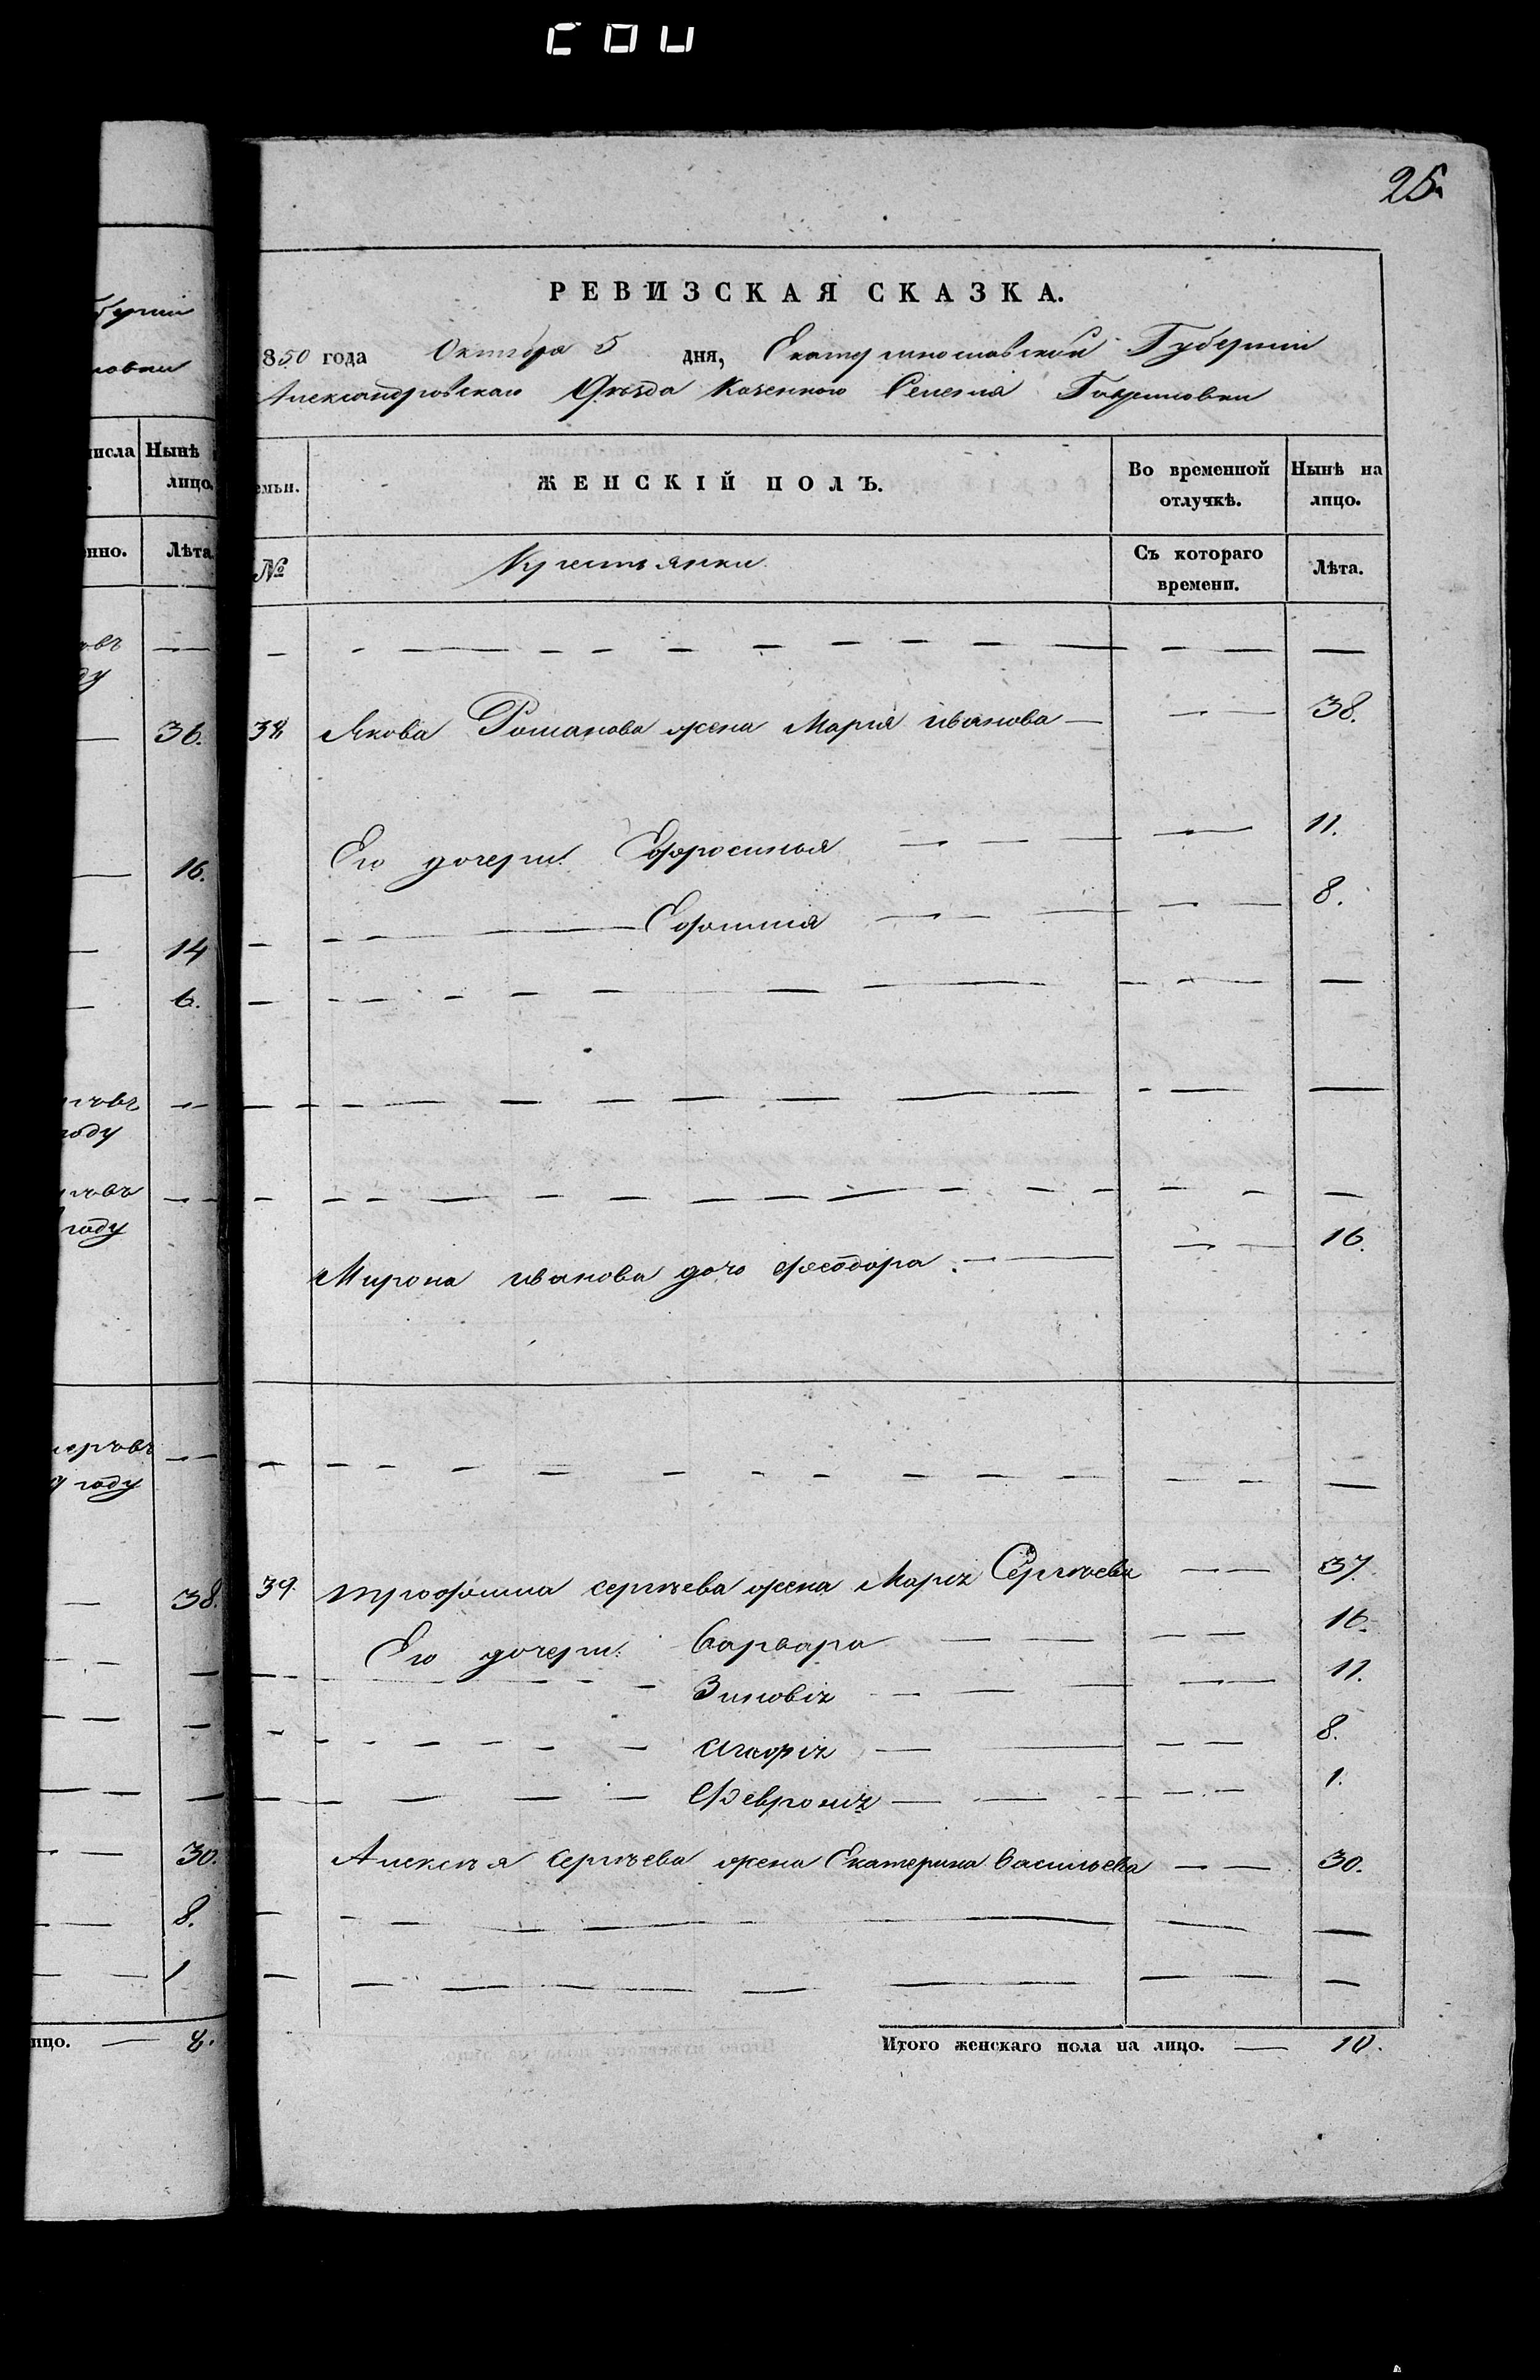 25.
РЕВИЗСКАЯ СКАЗКА.
850 года Октября 5 дня, Екатеринославской Губерніи
Александровскаго Уѣзда Казенного Селенія Гавриловки
емьи. ЖЕНСКІЙ ПОЛЪ. Во временной отлучкѣ. Нынѣ на лицо.
№ Крестьянки Съ котораго времени. Лѣта.
38 Якова Романова жена Марія иванова — 38.
Его дочери: Ефросинья — 11.
Ефимия — 8.
Мирона иванова дочь феодора. — 16.
39. трофима сергѣева жена Марія Сергѣева — 37.
Его дочери: Варвара — 16.
Зиновія — 11.
Агафія — 8.
Февронія — 1.
Алексѣя сергѣева жена Екатерина Васильева — 30.
Итого женскаго пола на лицо. — 10.
берніи
ловки
числа Нынѣ
лицо.
нно. Лѣта.
ду
36.
16.
14
6.
году
году
меръ въ
году
38.
30.
8.
1
ицо. — 8.